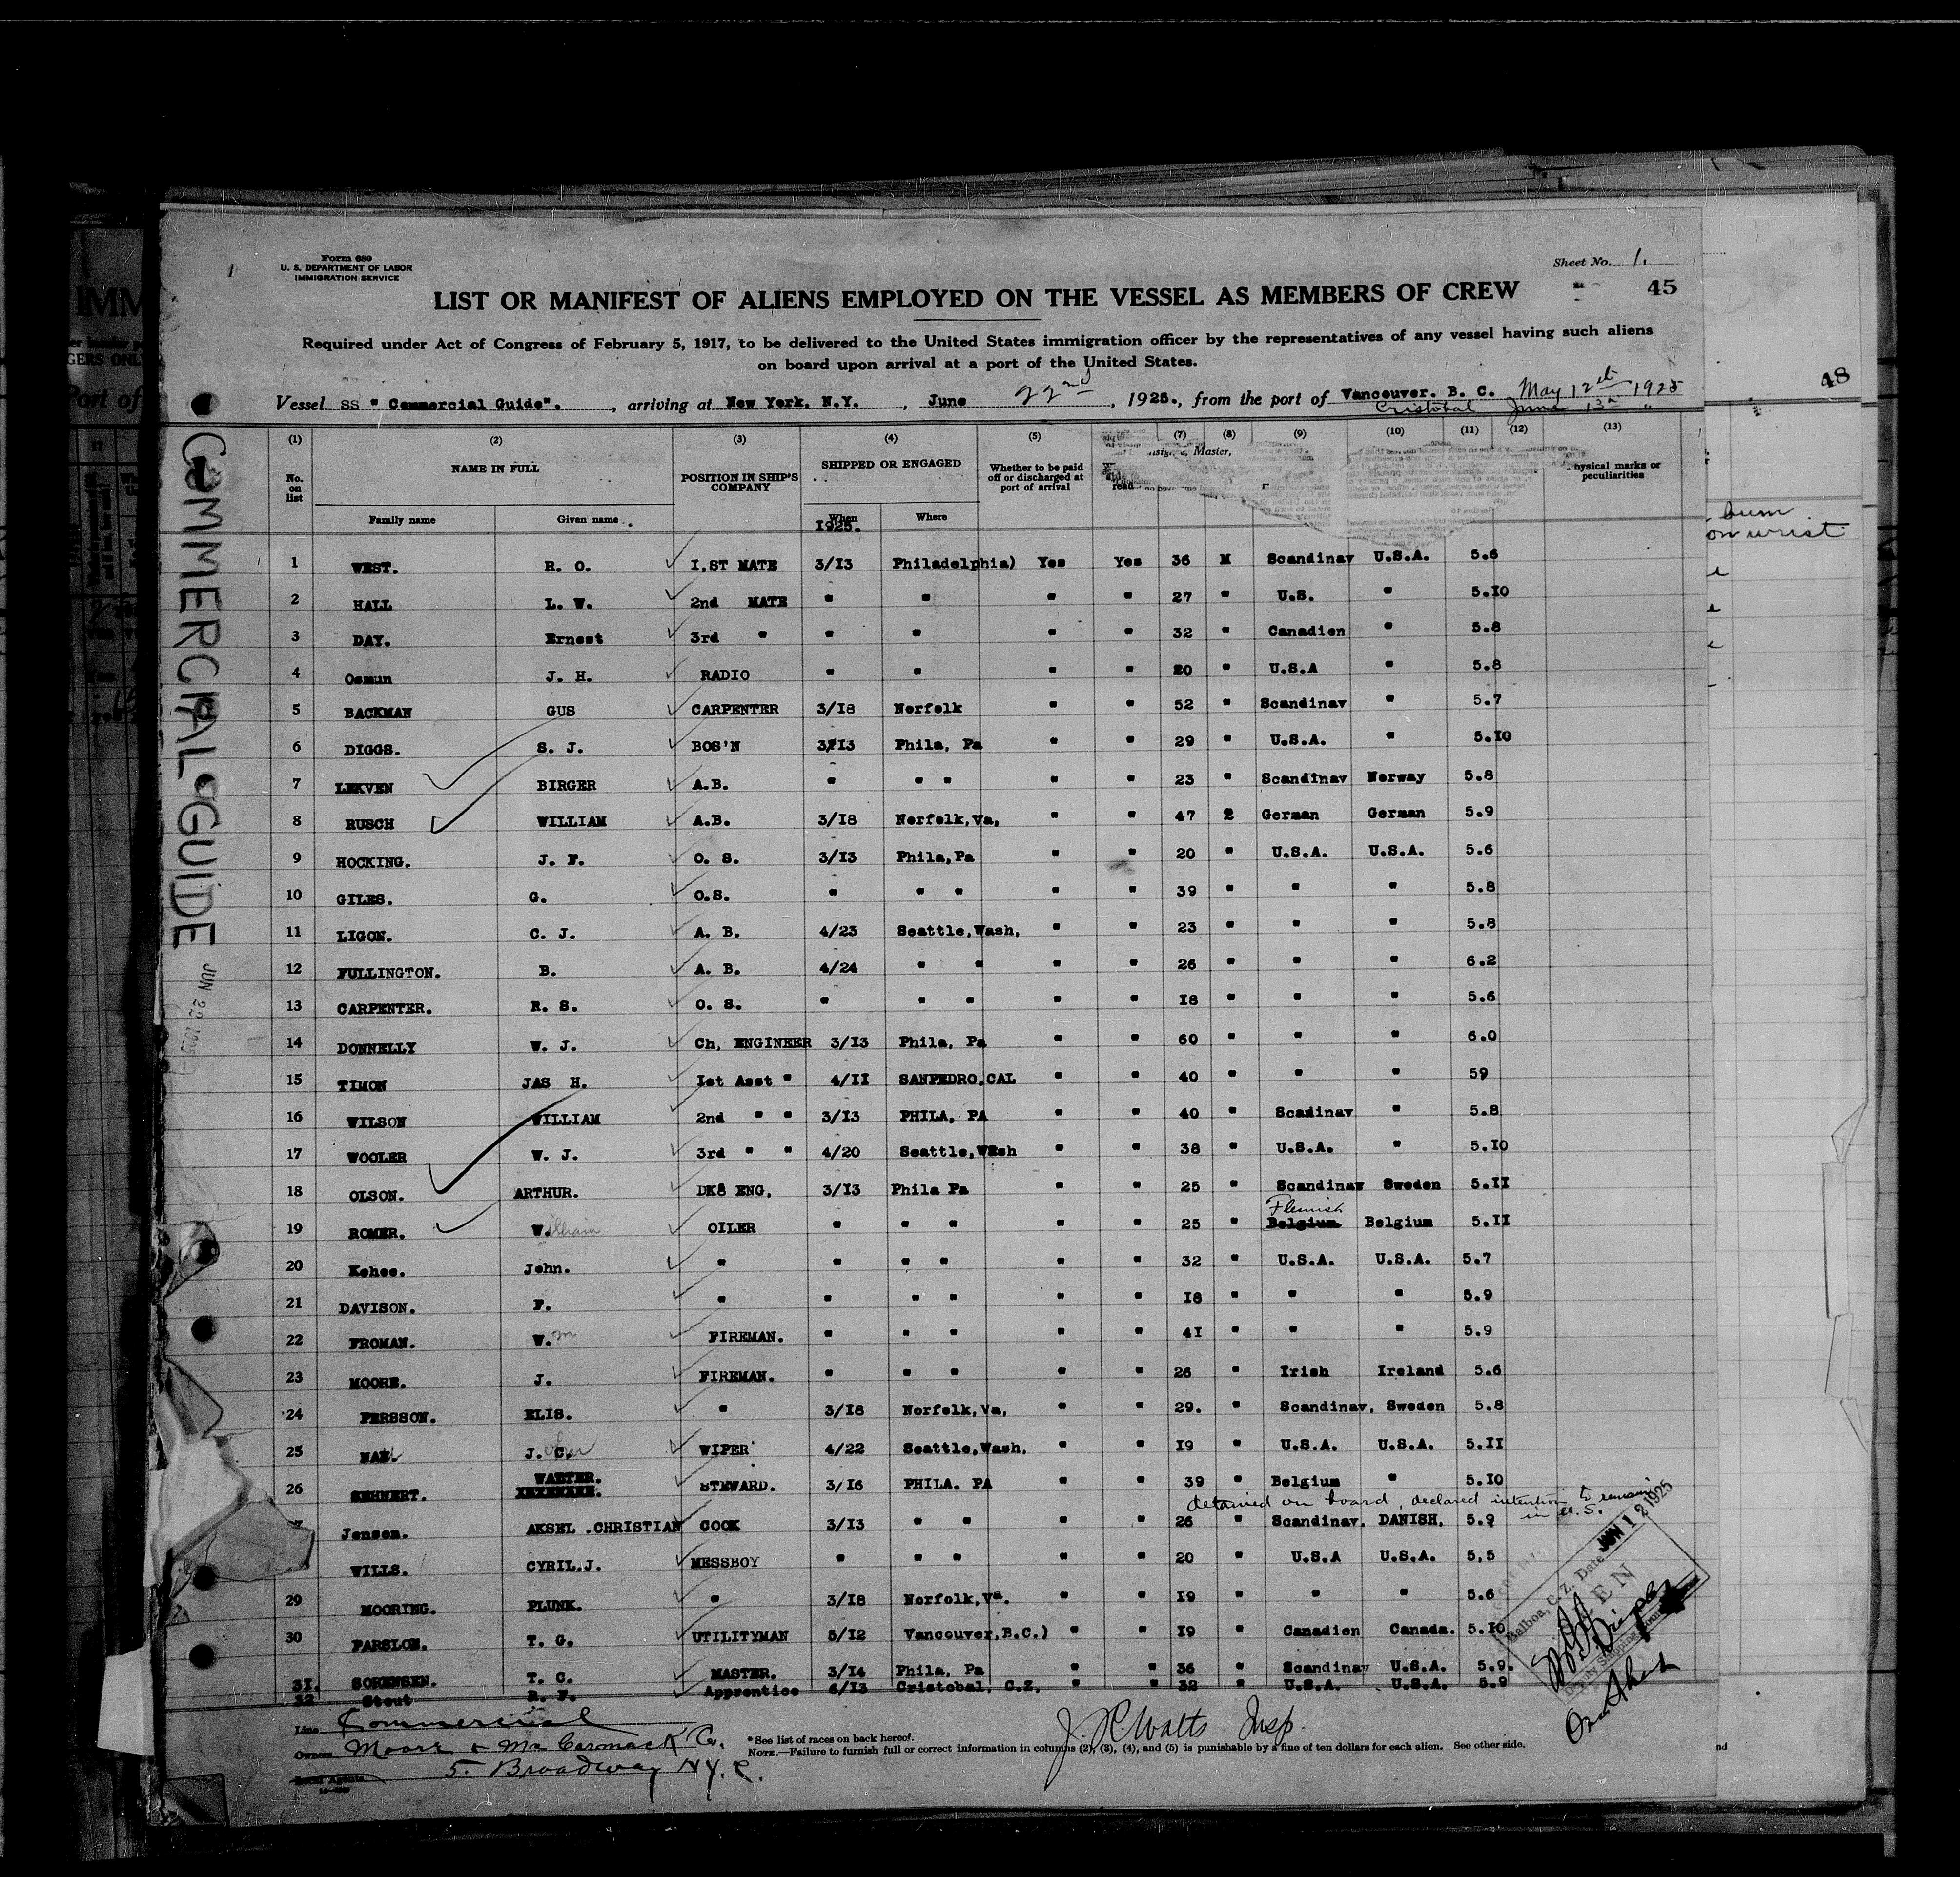 Form 680
U. S. DEPARTMENT OF LABOR
IMMIGRATION SERVICE
Sheet No. 1.
45
LIST OR MANIFEST OF ALIENS EMPLOYED ON THE VESSEL AS MEMBERS OF CREW
Required under Act of Congress of February 5, 1917, to be delivered to the United States immigration officer by the representatives of any vessel having such aliens
on board upon arrival at a port of the United States.
Vessel SS " Commercial Guide"., arriving at New York, N.Y., June 22nd, 1925., from the port of Vancouver. B. C. May 12th 1925
Cristobal June 13th "
(1) (2) (3) (4) (5) (7) (8) (9) (10) (11) (12) (13)
No. on list
NAME IN FULL
Family name Given name
POSITION IN SHIP'S COMPANY
SHIPPED OR ENGAGED
When Where
1925.
Whether to be paid off or discharged at port of arrival
read
Master,
physical marks or peculiarities
1 WEST. R. O. I,ST MATE 3/I3 Philadelphia) Yes Yes 36 M Scandinav U.S.A. 5.6
2 HALL L. W. 2nd MATE " " " " 27 " U.S. " 5.I0
3 DAY. Ernest 3rd " " " " " 32 " Canadien " 5.8
4 Osmun J. H. RADIO " " " " 20 " U.S.A " 5.8
5 BACKMAN GUS CARPENTER 3/I8 Norfolk " " 52 " Scandinav " 5.7
6 DIGGS. S. J. BOS'N 3/I3 Phila, Pa " " 29 " U.S.A. " 5.I0
7 LEKVEN BIRGER A.B. " " " " " 23 " Scandinav Norway 5.8
8 RUSCH WILLIAM A.B. 3/I8 Norfolk,Va, " " 47 2 German German 5.9
9 HOCKING. J. F. O. S. 3/I3 Phila,Pa " " 20 " U.S.A. U.S.A. 5.6
10 GILES. G. O.S. " " " " " 39 " " " 5.8
11 LIGON. C. J. A. B. 4/23 Seattle,Wash, " " 23 " " " 5.8
12 FULLINGTON. B. A. B. 4/24 " " " " 26 " " " 6.2
13 CARPENTER. R. S. O. S. " " " " " I8 " " " 5.6
14 DONNELLY W. J. Ch, ENGINEER 3/I3 Phila, Pa " " 60 " " " 6.0
15 TIMON JAS H. Ist Asst " 4/II SANPEDRO,CAL " " 40 " " " 59
16 WILSON WILLIAM 2nd " " 3/I3 PHILA, PA " " 40 " Scadinav " 5.8
17 WOOLER W. J. 3rd " " 4/20 Seattle,Wash " " 38 " U.S.A. " 5.I0
18 OLSON. ARTHUR. DK8 ENG, 3/I3 Phila Pa " " 25 " Scandinav Sweden 5.II
Flemish
19 ROMER. William OILER " " " " " 25 " Belgium Belgium 5.II
20 Kehoe. John. " " " " " " 32 " U.S.A. U.S.A. 5.7
21 DAVISON. F. " " " " " " I8 " " " 5.9
22 FROMAN. W.m FIREMAN. " " " " " 4I " " " 5.9
23 MOORE. J. FIREMAN. " " " " " 26 " Irish Ireland 5.6
24 PERSSON. ELIS. " 3/I8 Norfolk,Va, " " 29. " Scandinav, Sweden 5.8
25 J. C. WIPER 4/22 Seattle,Wash. " " I9 " U.S.A. U.S.A. 5.II
WALTER.
26 SEHWERT. STEWARD. 3/I6 PHILA. PA " " 39 " Belgium " 5.I0
detained on board, declared intention to remain in U.S.
7 Jensen. AKSEL .CHRISTIAN COOK 3/I3 " " " " 26 " Scandinav. DANISH. 5.9
WILLS. CYRIL.J. MESSBOY " " " " " 20 " U.S.A U.S.A. 5,5
29 MOORING. PLUNK. " 3/I8 Norfolk,Va. " " I9 " " " 5.6
30 PARSLOE. T. G. UTILITYMAN 5/I2 Vancouver,B.C.) " " I9 " Canadien Canada. 5.I0
31. SORENSEN. T. C. MASTER. 3/I4 Phila, Pa " " 36 " Scandinav U.S.A. 5.9.
32 Stout R. F. Apprentice 6/I3 Cristobal, C.Z, " " 32 " U.S.A. U.S.A. 5.9
Balboa, C. Z. Date JUN 12 1925
Deputy Shipping
Line Commercial
Owners Moore & Mc Cormack Co.
Local Agents 5. Broadway N.Y.C.
J. R. Watts Insp.
*See list of races on back hereof.
NOTE.—Failure to furnish full or correct information in columns (2), (3), (4), and (5) is punishable by a fine of ten dollars for each alien. See other side.
COMMERCIAL GUIDE
JUN 22 1925
48
on wrist